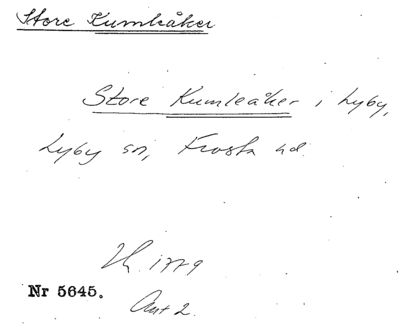 Store Kumleåker
Store Kumleåker i Lyby,
Lyby sn, Frosta hd.
Lh. 1779
Nr 5645.
Akt 2.